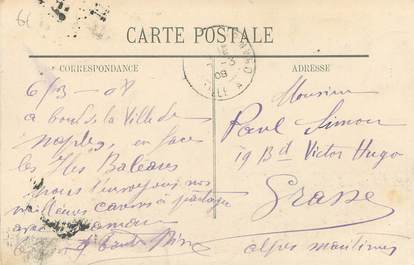 CARTE POSTALE
CORRESPONDANCE
ADRESSE
6/3 - 08
a bord de la Ville de
Naples, en face
les Iles Baléares
nous t'envoyons nos
meilleures caresses à partager
avec
Monsieur
Paul Simon
19 Bd Victor Hugo
Grasse
Alpes Maritimes